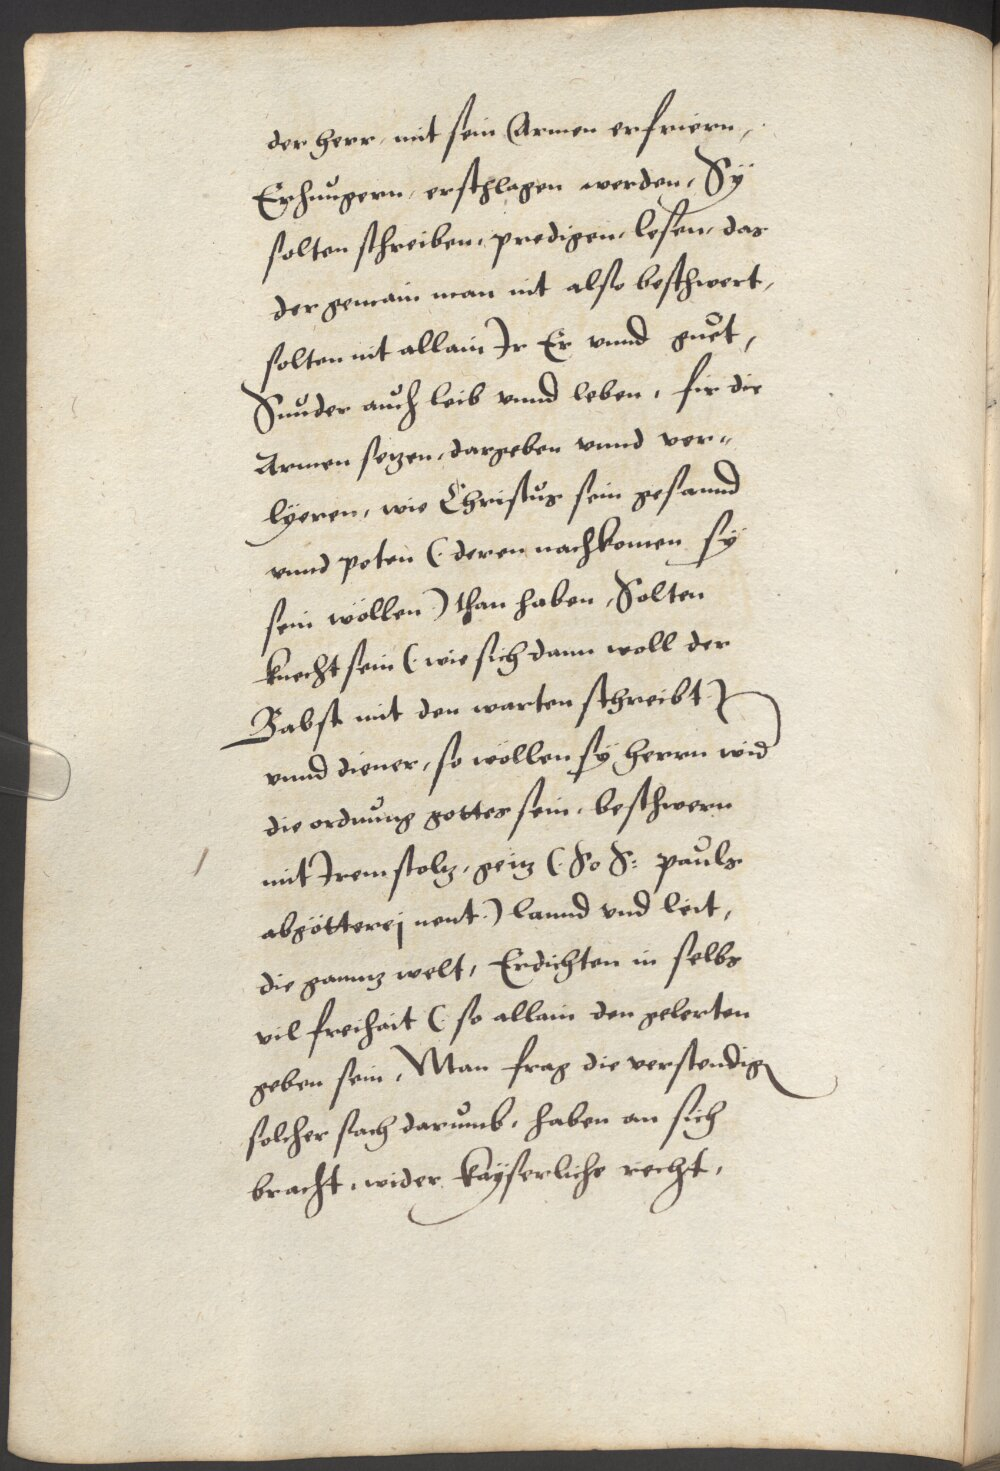 der herr, mit sein Armen erfriern,
Erhungern, erschlagen werden, Sÿ
solten schreiben, predigen, lesen, das
der gemain man nit also beschwert,
solten nit allain Jr Er vnnd guet,
Sunder auch leib vnnd leben, fir die
Armen setzen, dargeben vnnd ver=
lÿeren, wie Christus sein gesannd
vnnd poten (deren nachkomen sÿ
sein wöllen) than haben, Solten
knecht sein (wie sich dann woll der
Babst mit den warten schreibt)
vnnd diener, so wöllen sÿ herrn wid
die ordnung gottes sein, beschwern
mit Jrem stoltz, geitz (So S: pauls
abgötterej nent) lannd vnd leit,
die ganntz welt, Erdichten in selbs
vil freihait (so allain den gelerten
geben sein, Man frag die verstendig
solcher sach darumb, haben an sich
bracht, wider kaÿserliche recht,